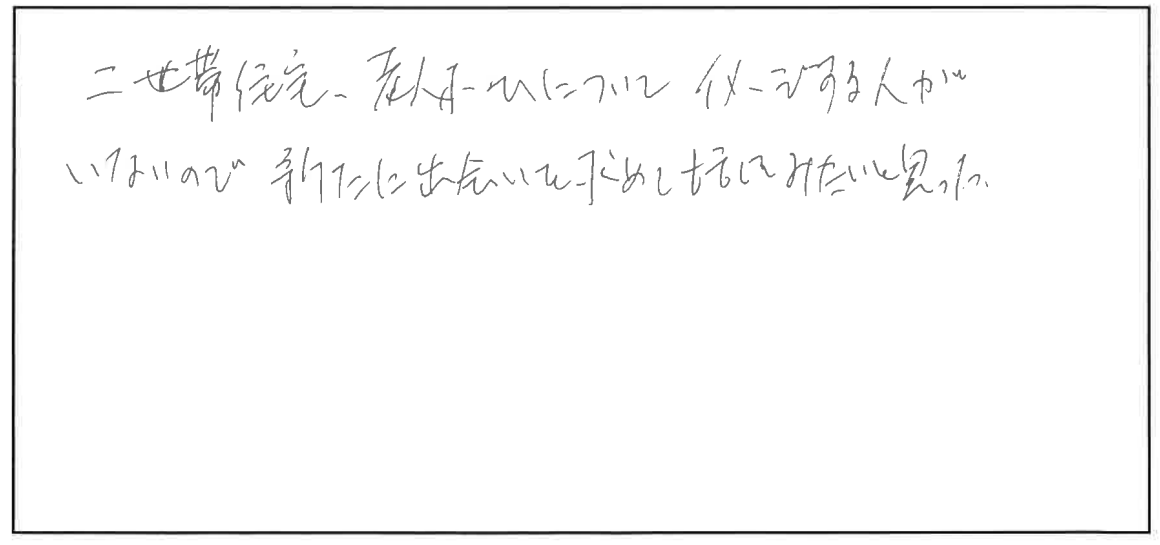 二世帯住宅、老人ホームについてイメージする人が
いないので新たに出会いを求めて話してみたいと思った。